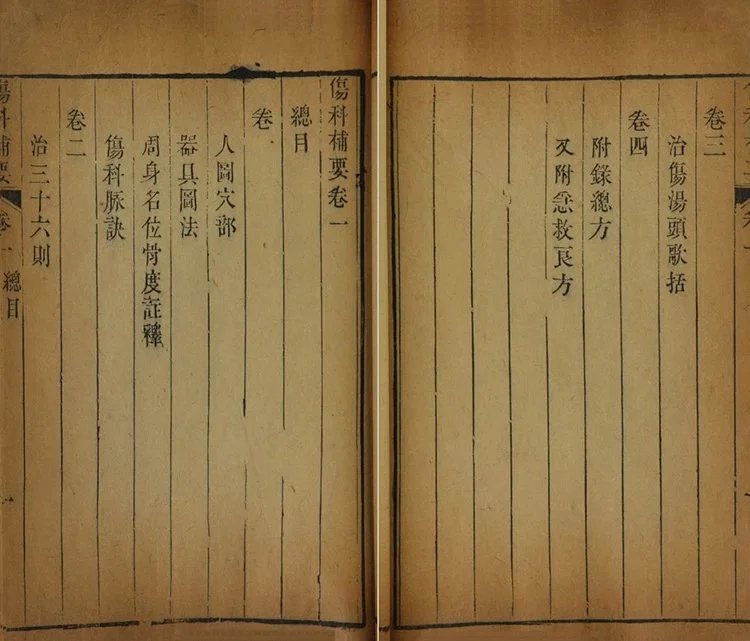 傷科補要卷一
總目
卷
人圖穴部
器具圖法
周身名位骨度註釋
傷科脈訣
卷二
治三十六則
傷科補要 卷一 總目 一
卷三
治傷湯頭歌括
卷四
附錄總方
又附急救良方